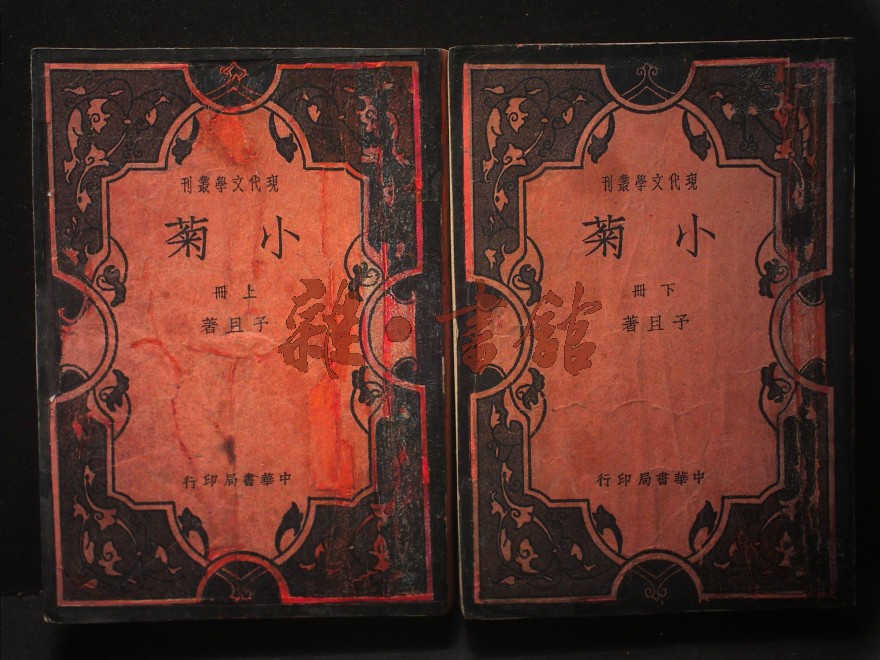 現代文學叢刊
小菊
上冊
子且著
中華書局印行
現代文學叢刊
小菊
下冊
子且著
中華書局印行
雜·書館